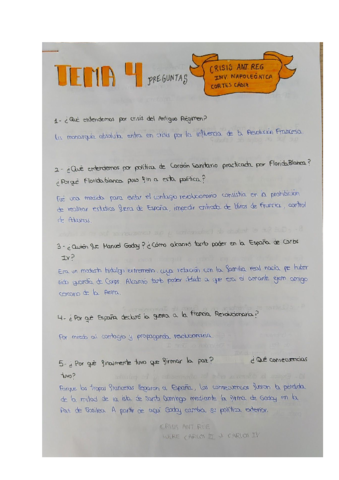 TEMA 4 PREGUNTAS
CRISIS ANT. REG
INV. NAPOLEÓNICA
CORTES CÁDIZ
1.- ¿Qué entendemos por crisis del Antiguo Régimen?
La monarquía absoluta entra en crisis por la influencia de la Revolución Francesa.
2.- ¿Qué entendemos por política de Cordón Sanitario practicada por Floridablanca?
¿Por qué Floridablanca puso fin a esta política?
Fue una medida para evitar el contagio revolucionario consistía en la prohibición
de realizar estudios fuera de España, impedir entrada de libros de Francia, control
de
3.- ¿Quién fue Manuel Godoy? ¿Cómo alcanzó tanto poder en la España de Carlos
IV?
Era un modesto hidalgo extremeño cuya relación con la familia real nacía por haber
sido guardia de Corps. Alcanzó tanto poder debido a que era el amante
de la Reina.
4.- ¿Por qué España declaró la guerra a la Francia Revolucionaria?
Por miedo al contagio y propaganda revolucionaria.
5.- ¿Por qué finalmente tuvo que firmar la paz? ¿Qué consecuencias
tuvo?
Porque las tropas francesas llegaron a España. Las consecuencias fueron la pérdida
de la mitad de la isla de Santo Domingo mediante la firma de Godoy en la
Paz de Basilea. A partir de aquí Godoy cambia su política exterior.